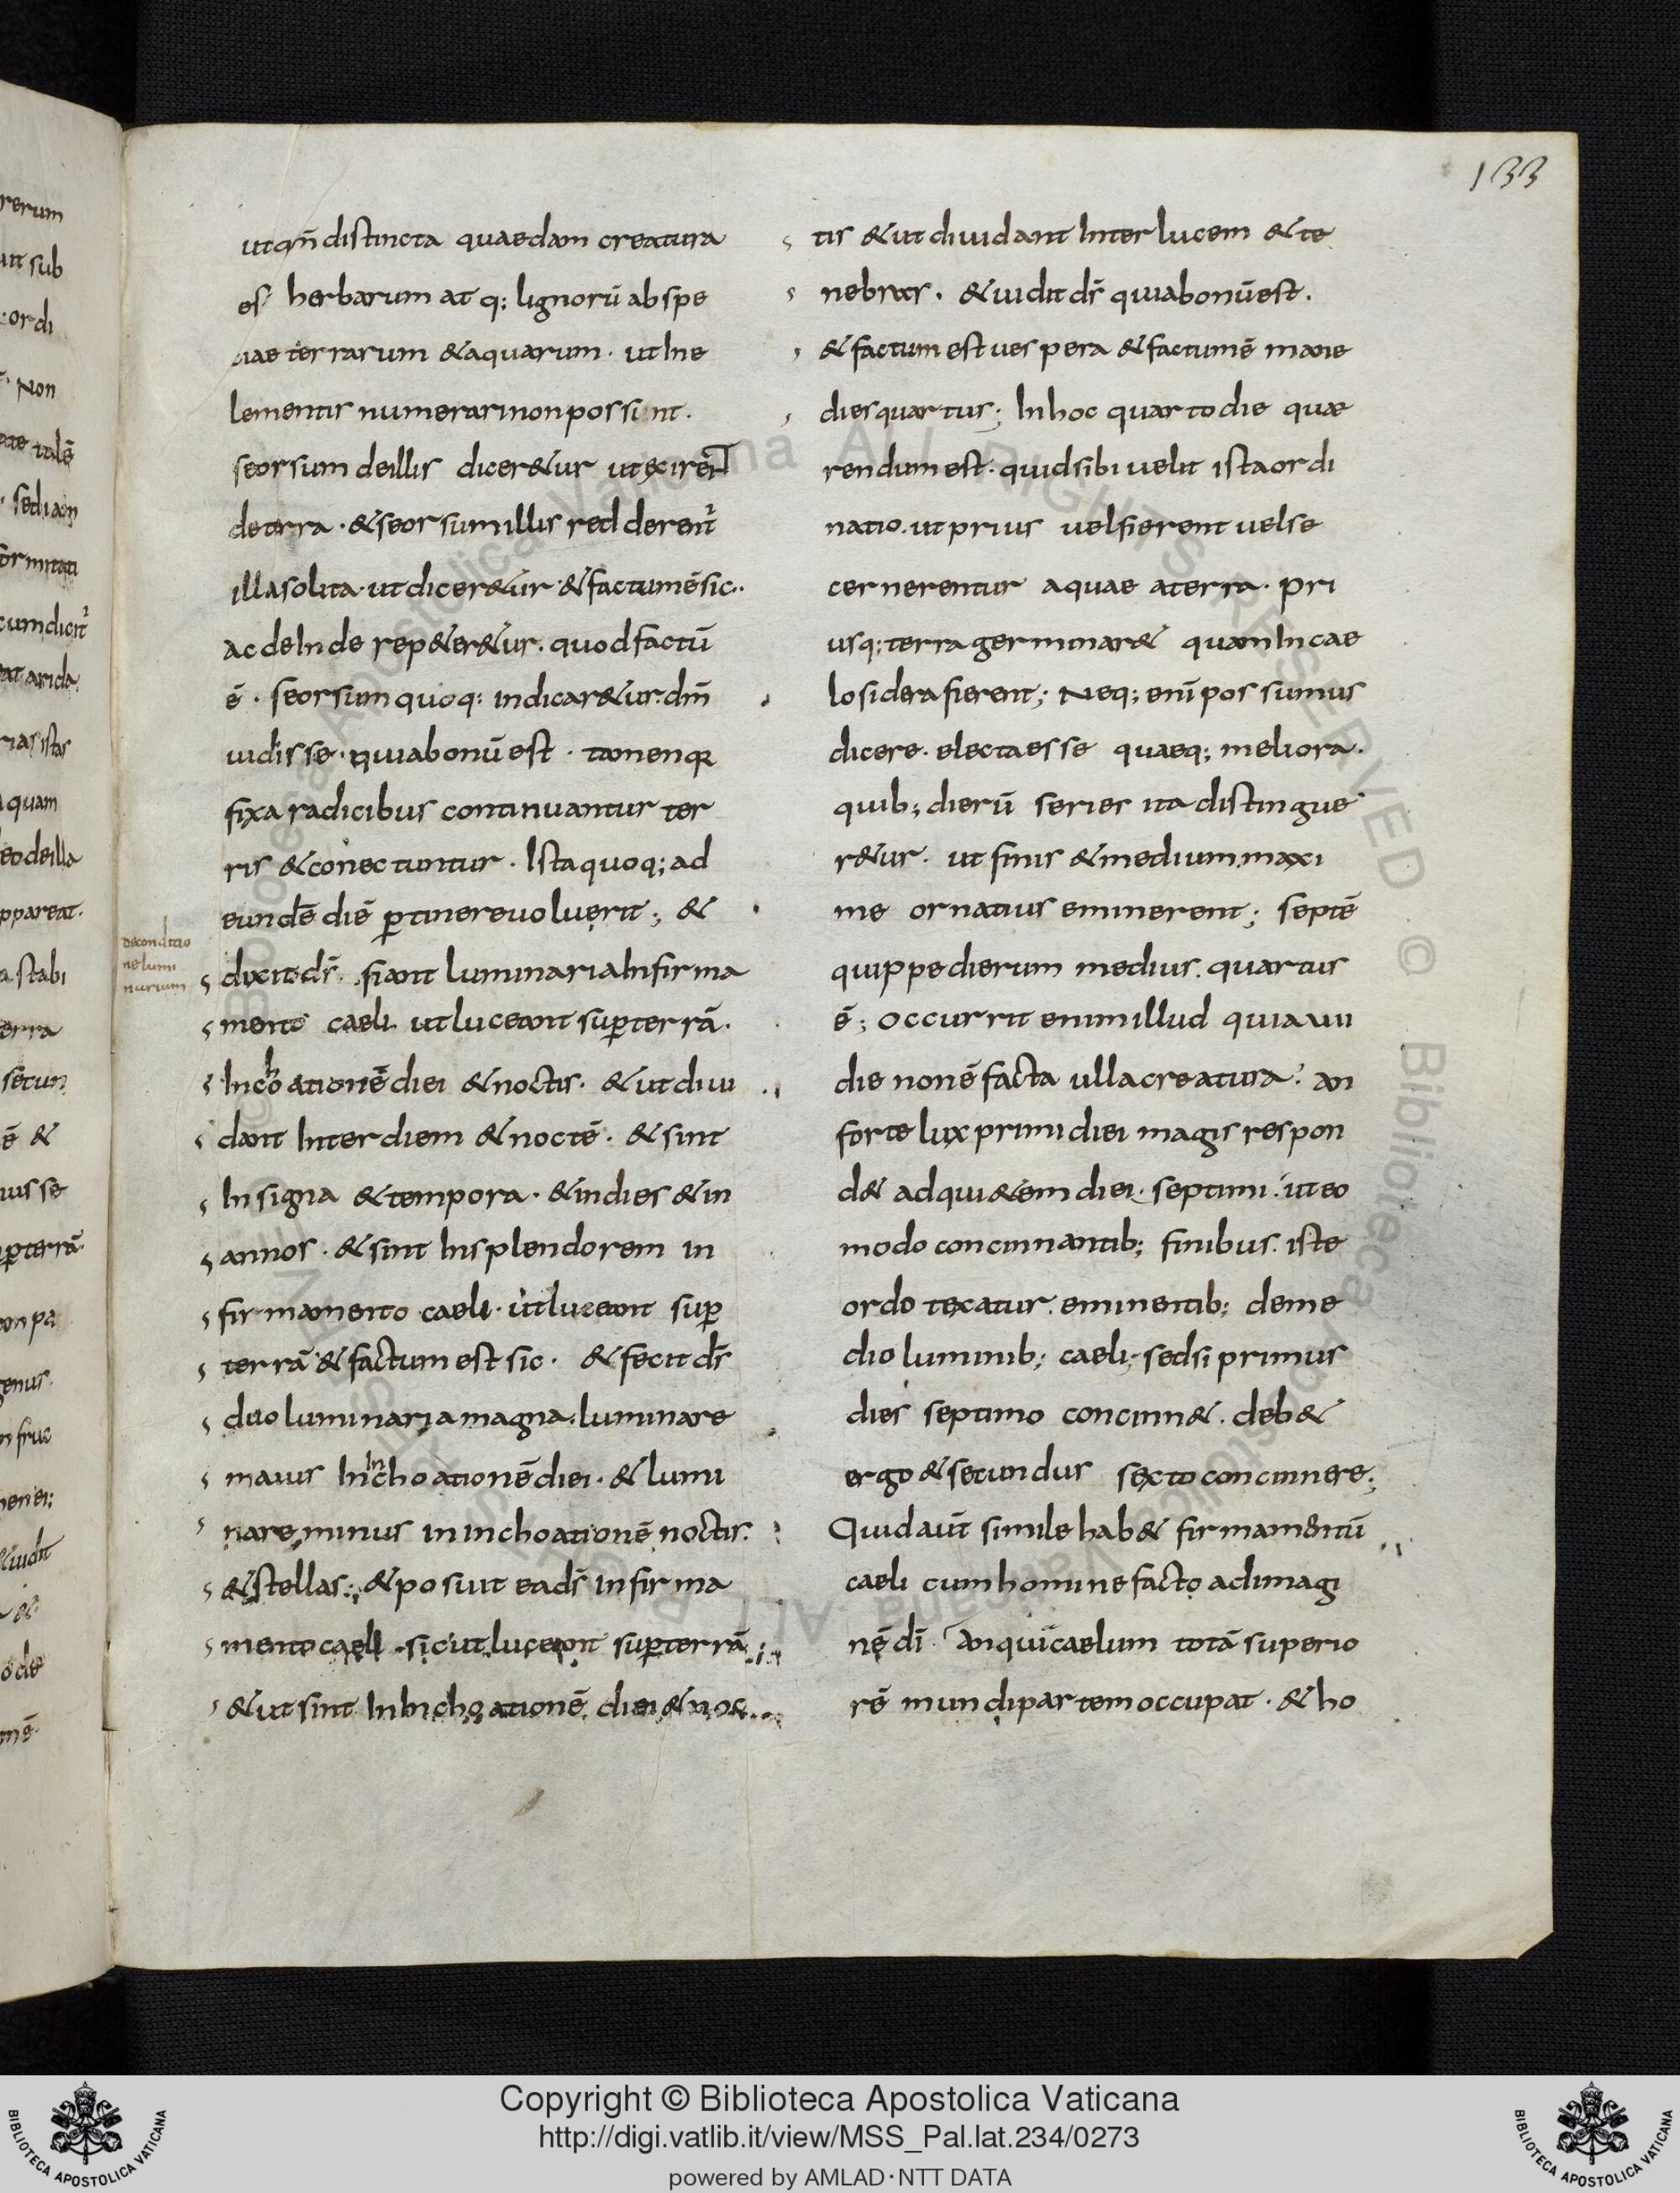 133
ut qm̄ distincta quaedam creatura
es herbarum atq; lignorū abspe
ciae terrarum & aquarum · ut In e
lementis numerari non possint.
seorsum de illis dicer&ur ut exirent
de terra · & seorsum illis redderent᷑
illa solita · ut dicer&ur · & factum ē sic ·
ac deInde rep&er&ur · quod factū
ē · seorsum quoq; indicar&ur · dm̄
uidisse · quia bonū est · tamen qa
fixa radicibus continuantur ter
ris & conectuntur · Ista quoq; ad
eundē diē ꝑtinere uoluerit ; &
de conditio
ne lumi
narium
dixit ds̄ · fiant luminaria In firma
mento caeli ut luceant suꝑ terrā ·
Inchoationē diei & noctis · & ut diui
dant Inter diem & noctē · & sint
In signa & tempora · & in dies & in
annos · & sint In splendorem in
firmamento caeli · ut luceant suꝑ
terrā & factum est sic · & fecit ds̄
duo luminaria magna · luminare
maius Inchoationē diei · & lumi
nare minus in inchoationē noctis ·
& stellas ; & posuit ea ds̄ in firma
mento caeli · sic ut luceant suꝑ terrā ;
& ut sint In Inchoationē diei & noc
tis & ut diuidant Inter lucem & te
nebras · & uidit ds̄ quia bonū est ·
& factum est uespera & factum ē mane
dies quartus ; In hoc quarto die quæ
rendum est · quid sibi uelit ista ordi
natio · ut prius uel fierent uel se
cernerentur aquae a terra · pri
usq; terra germinar& quam In cae
lo sidera fierent ; Neq; enī possumus
dicere · electa esse quaeq; meliora ·
quib; dierū series ita distingue
r&ur · ut finis & medium maxi
me ornatius eminerent ; septē
quippe dierum medius · quartus
ē ; occurrit enim illud quia uii
die non ē facta ulla creatura · an
forte lux primi diei magis respon
d& ad qui&em diei · septimi · ut eo
modo concinnantib; finibus · iste
ordo texatur · eminentib; de me
dio luminib; caeli · sed si primus
dies septimo concinn& · deb&
ergo & secundus sexto concinnere ;
Quid aūt simile hab& firmamentū
caeli cum homine facto ad imagi
nē dī · An qui caelum totā superio
rē mundi partem occupat · & ho
Copyright © Biblioteca Apostolica Vaticana
http://digi.vatlib.it/view/MSS_Pal.lat.234/0273
powered by AMLAD·NTT DATA